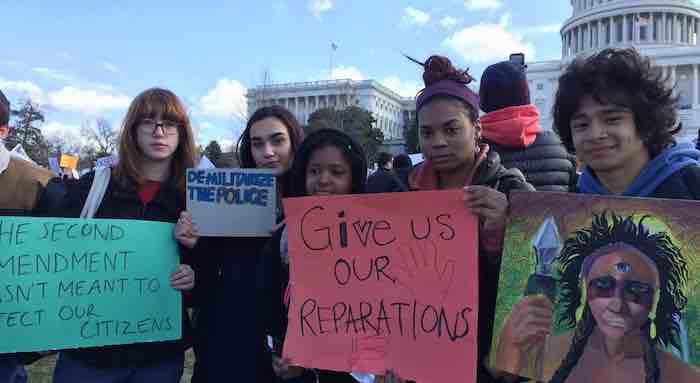 HE SECOND
MENDMENT
SN'T MEANT TO
TECT OUR
CITIZENS
DE-MILITARIZE
THE POLICE
GIVE US
OUR
REPARATIONS